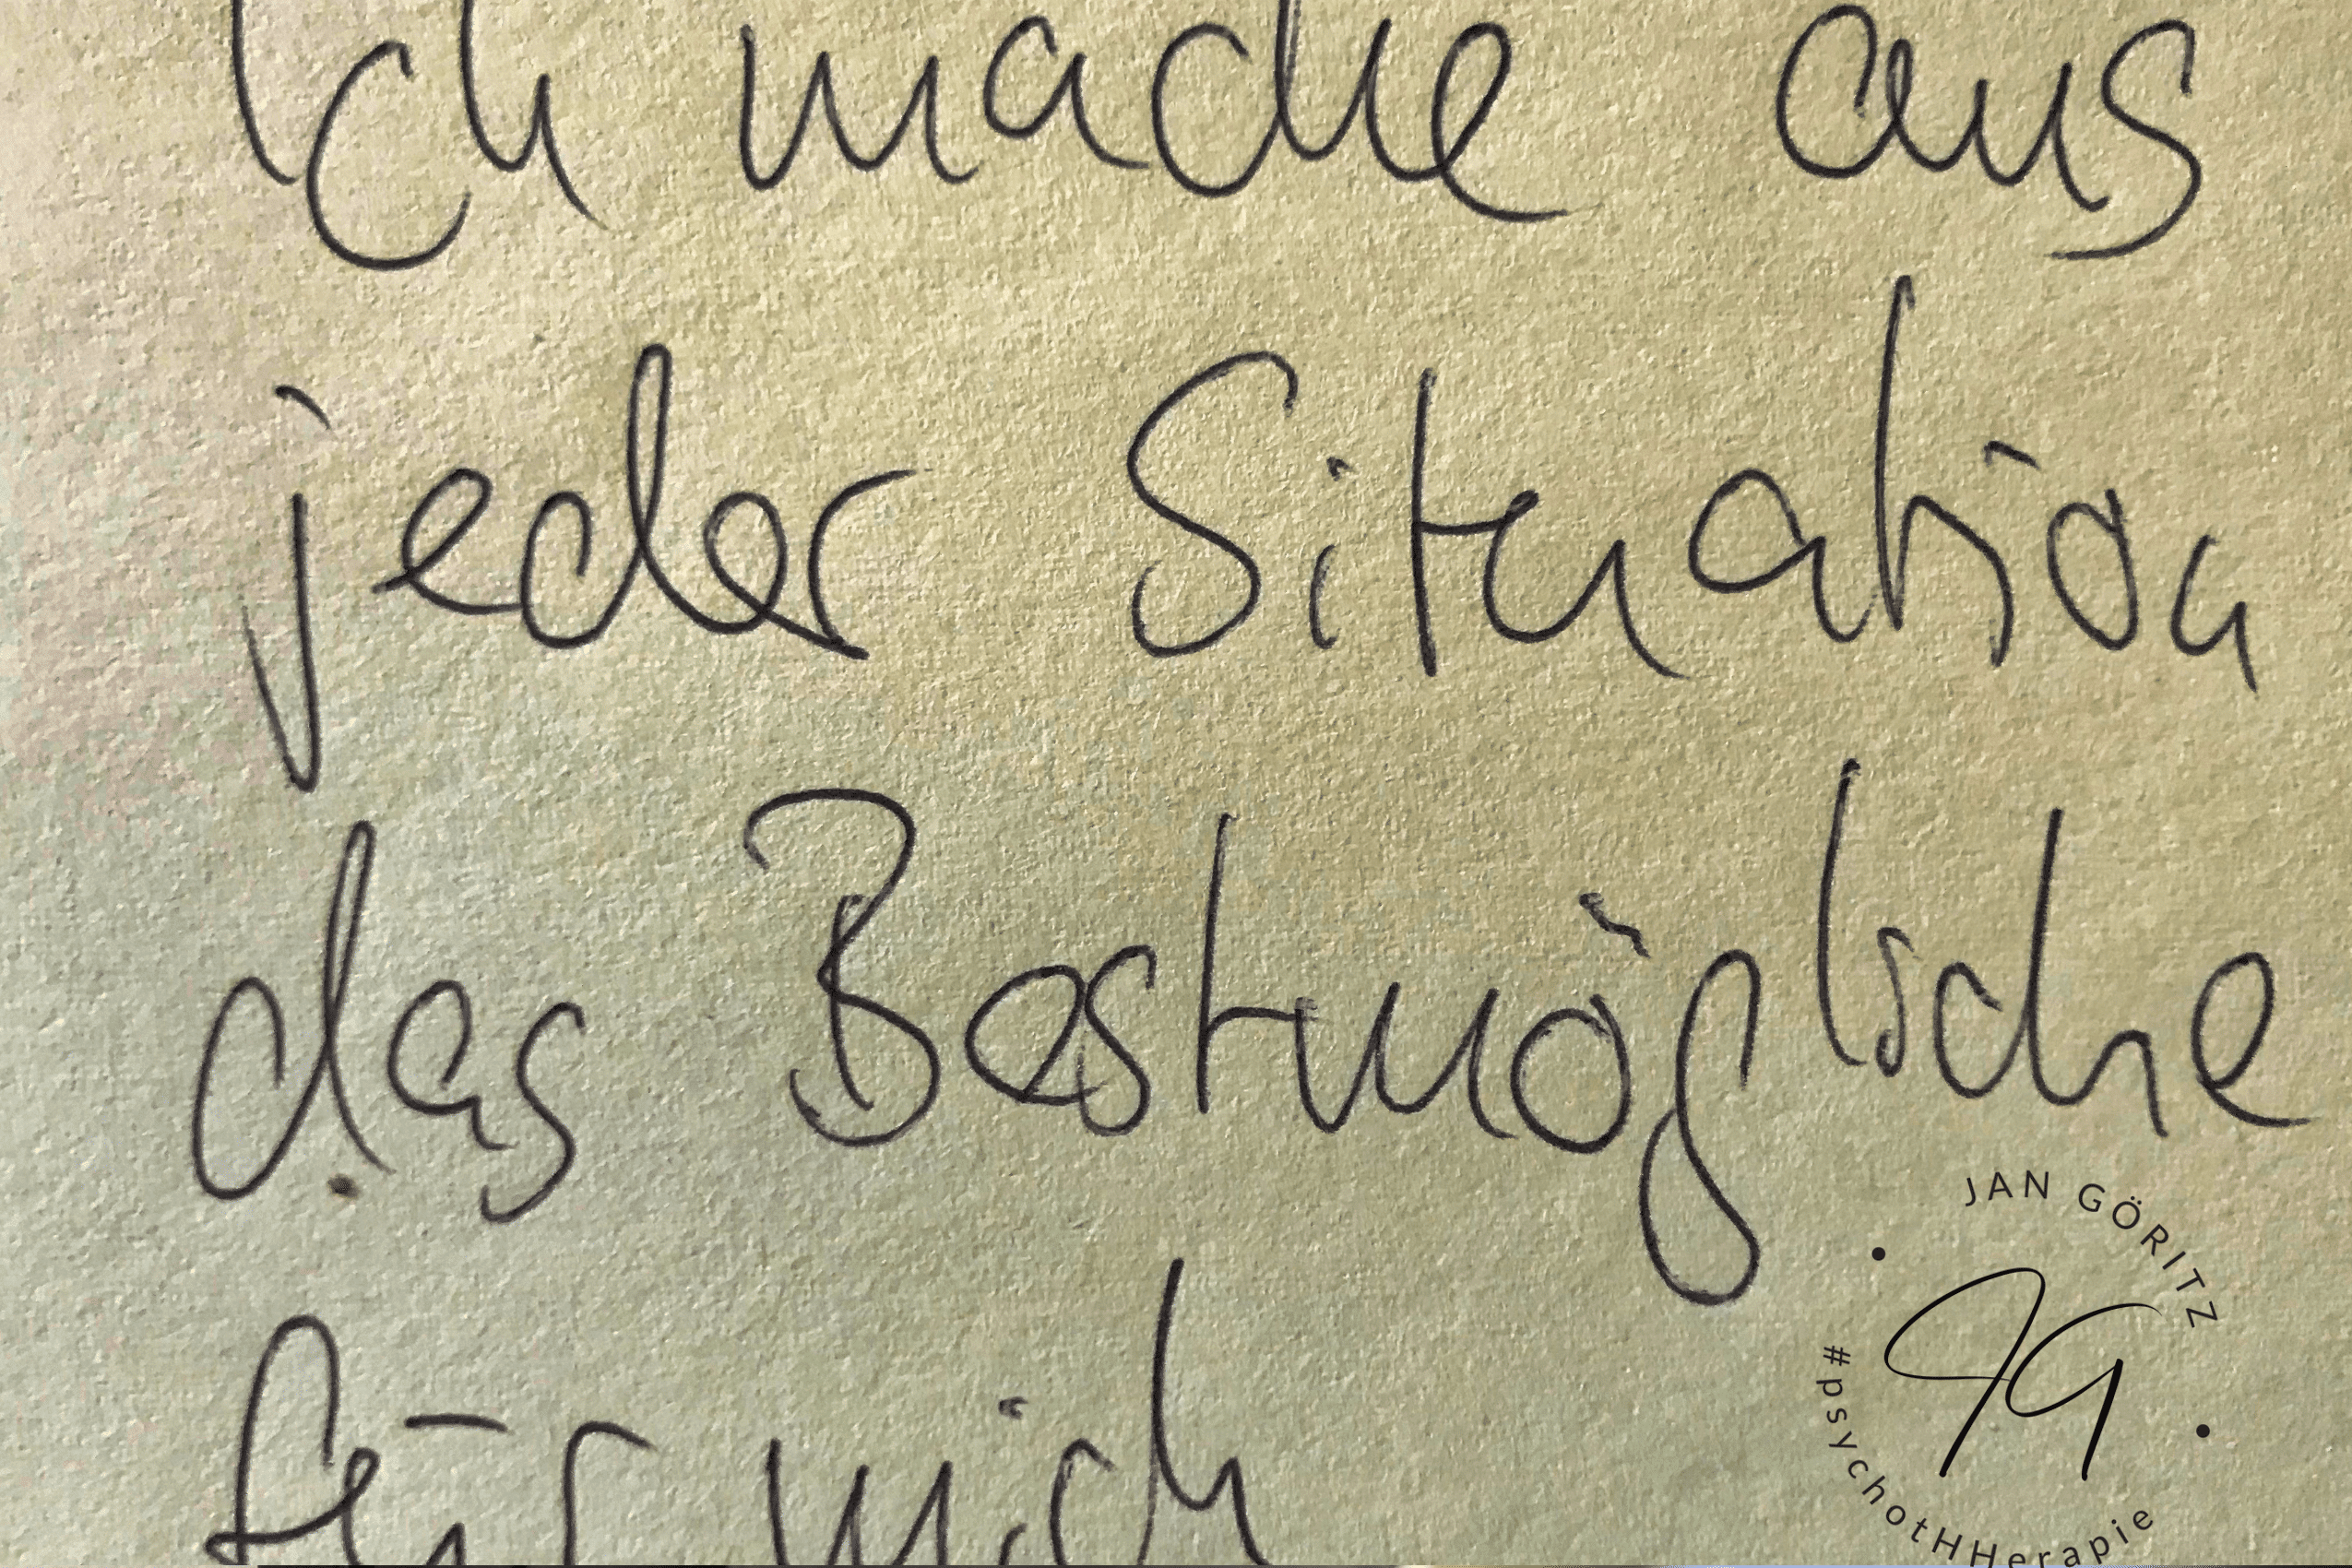 Ich mache aus
jeder Situation
das Bestmögliche
für mich
JAN GÖRITZ
JG
#psychotHHerapie